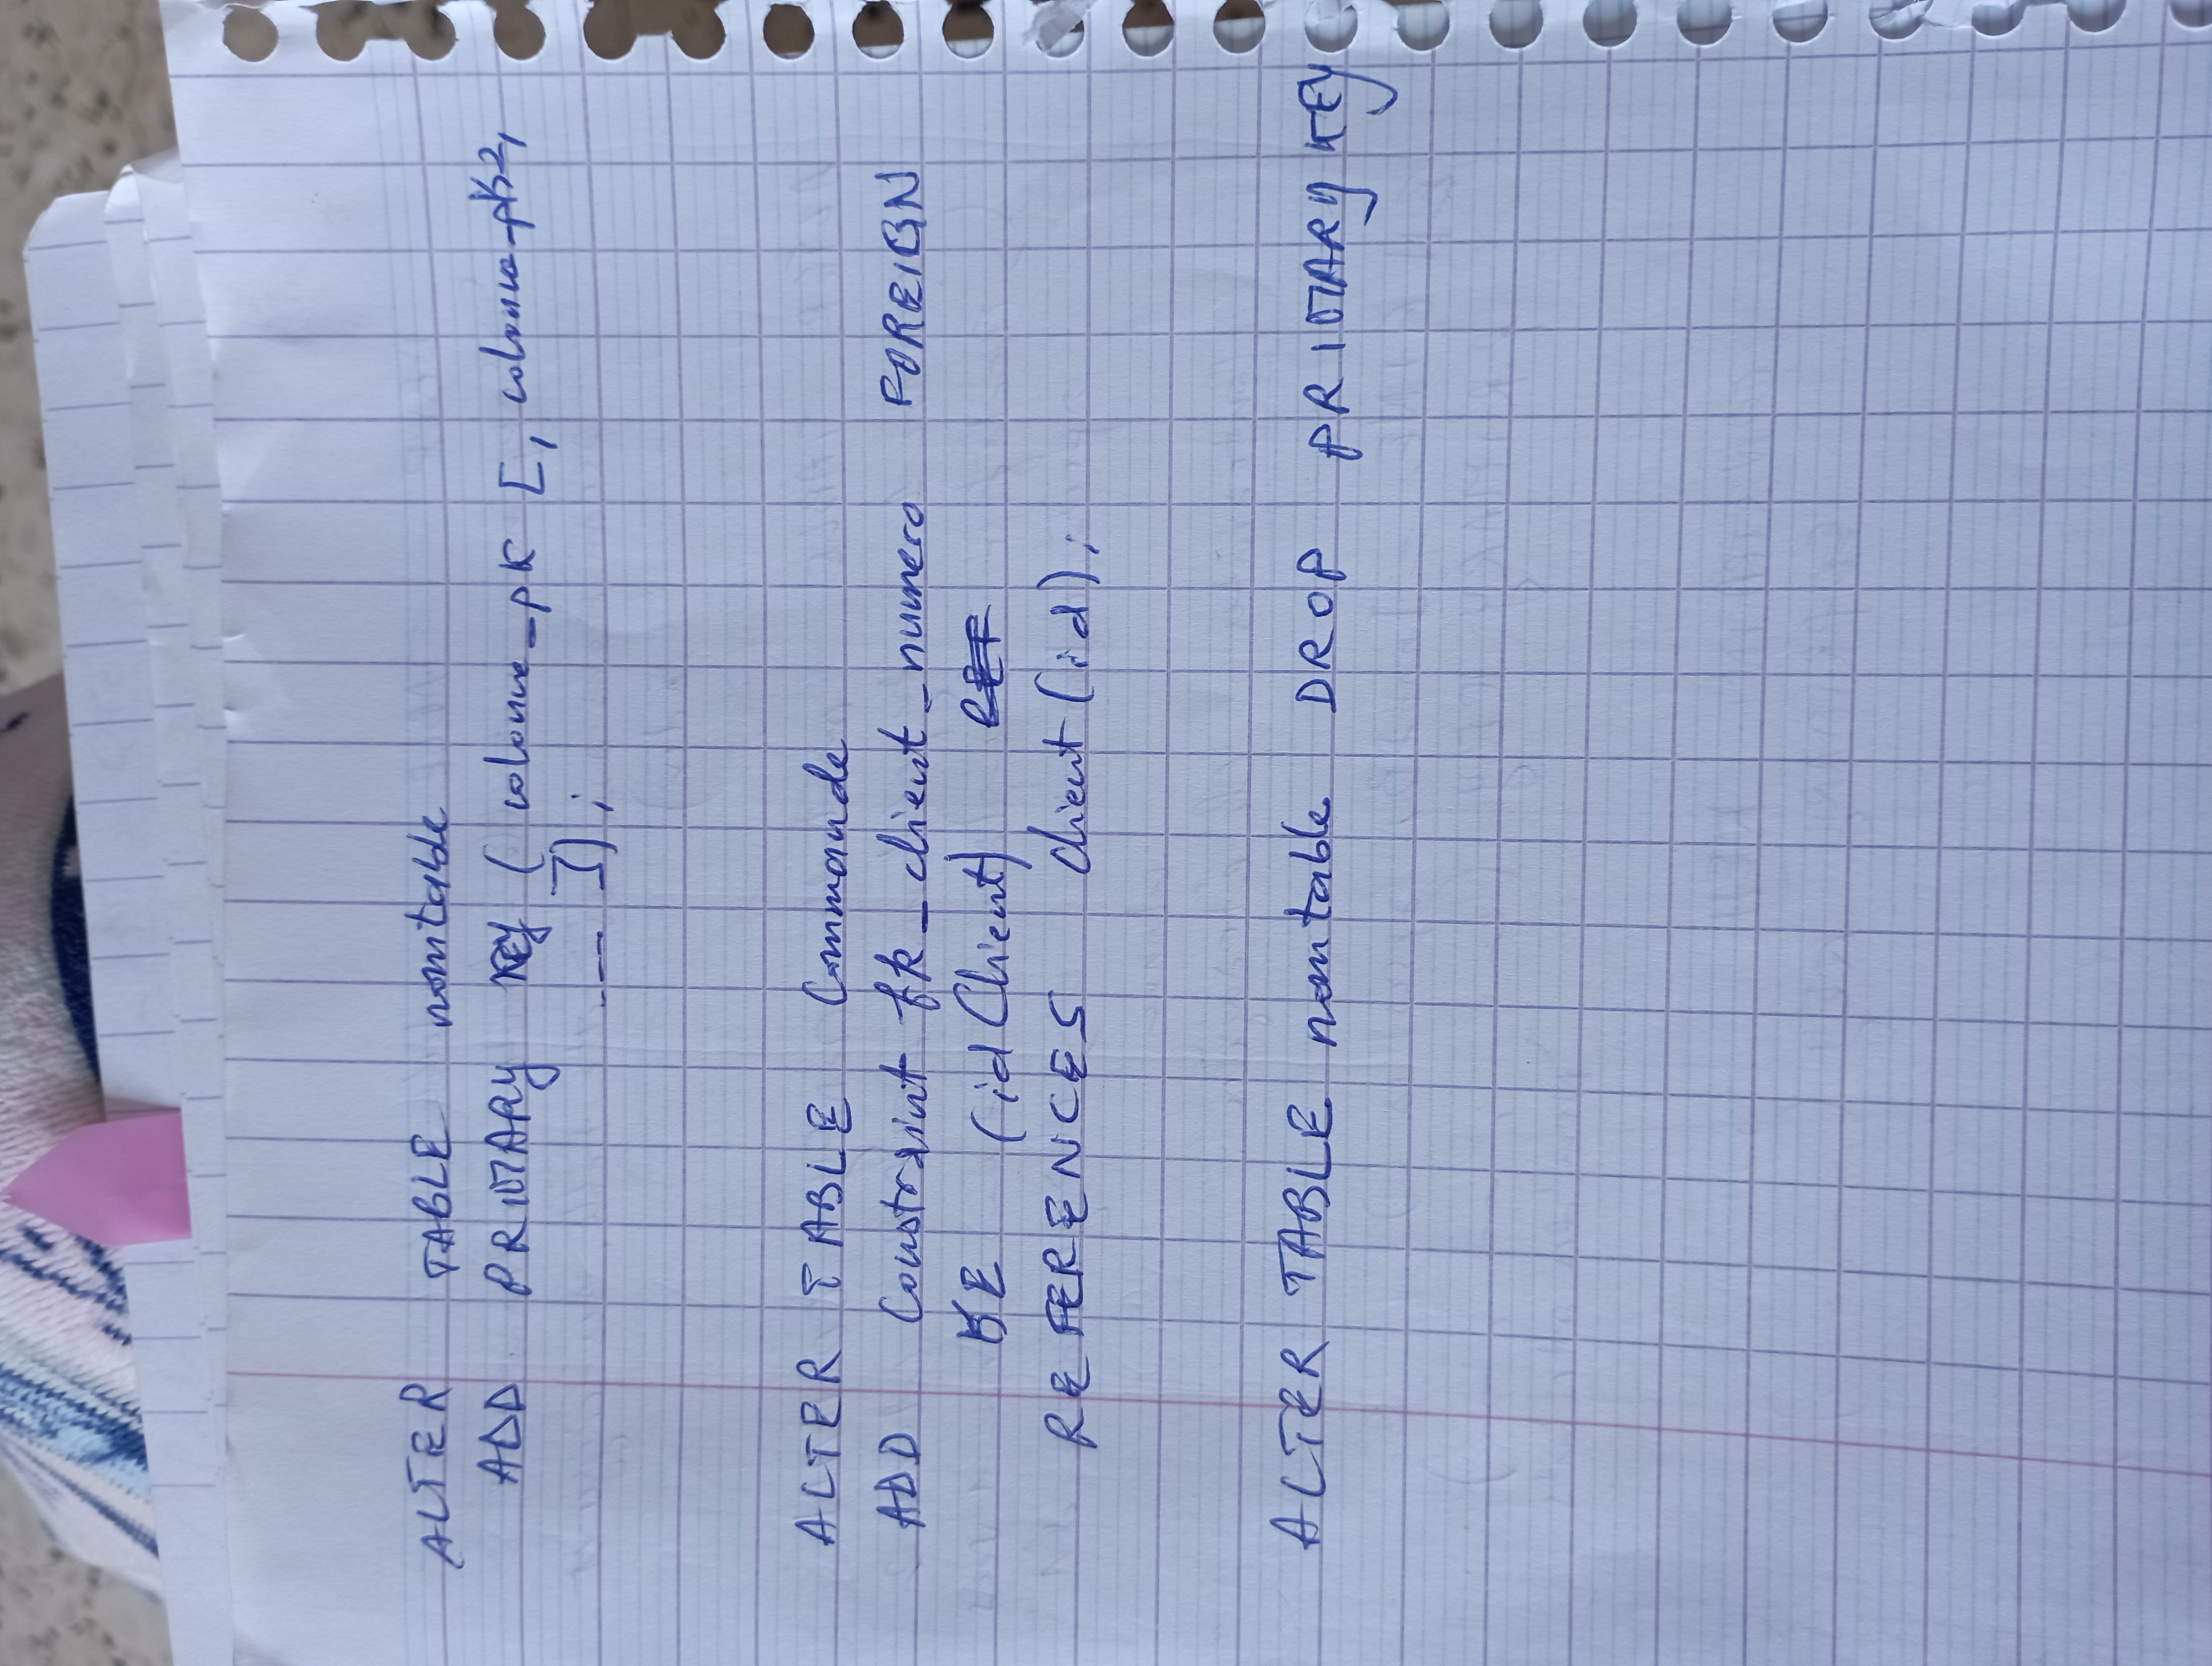 ALTER TABLE nomtable
ADD PRIMARY KEY ( colonne_pk [, colonne_pk2,
... ]) ;
ALTER TABLE Commande
ADD Constraint fk_client_numero FOREIGN
KE (idClient) REF
REFERENCES client(id);
ALTER TABLE nomtable DROP PRIMARY KEY